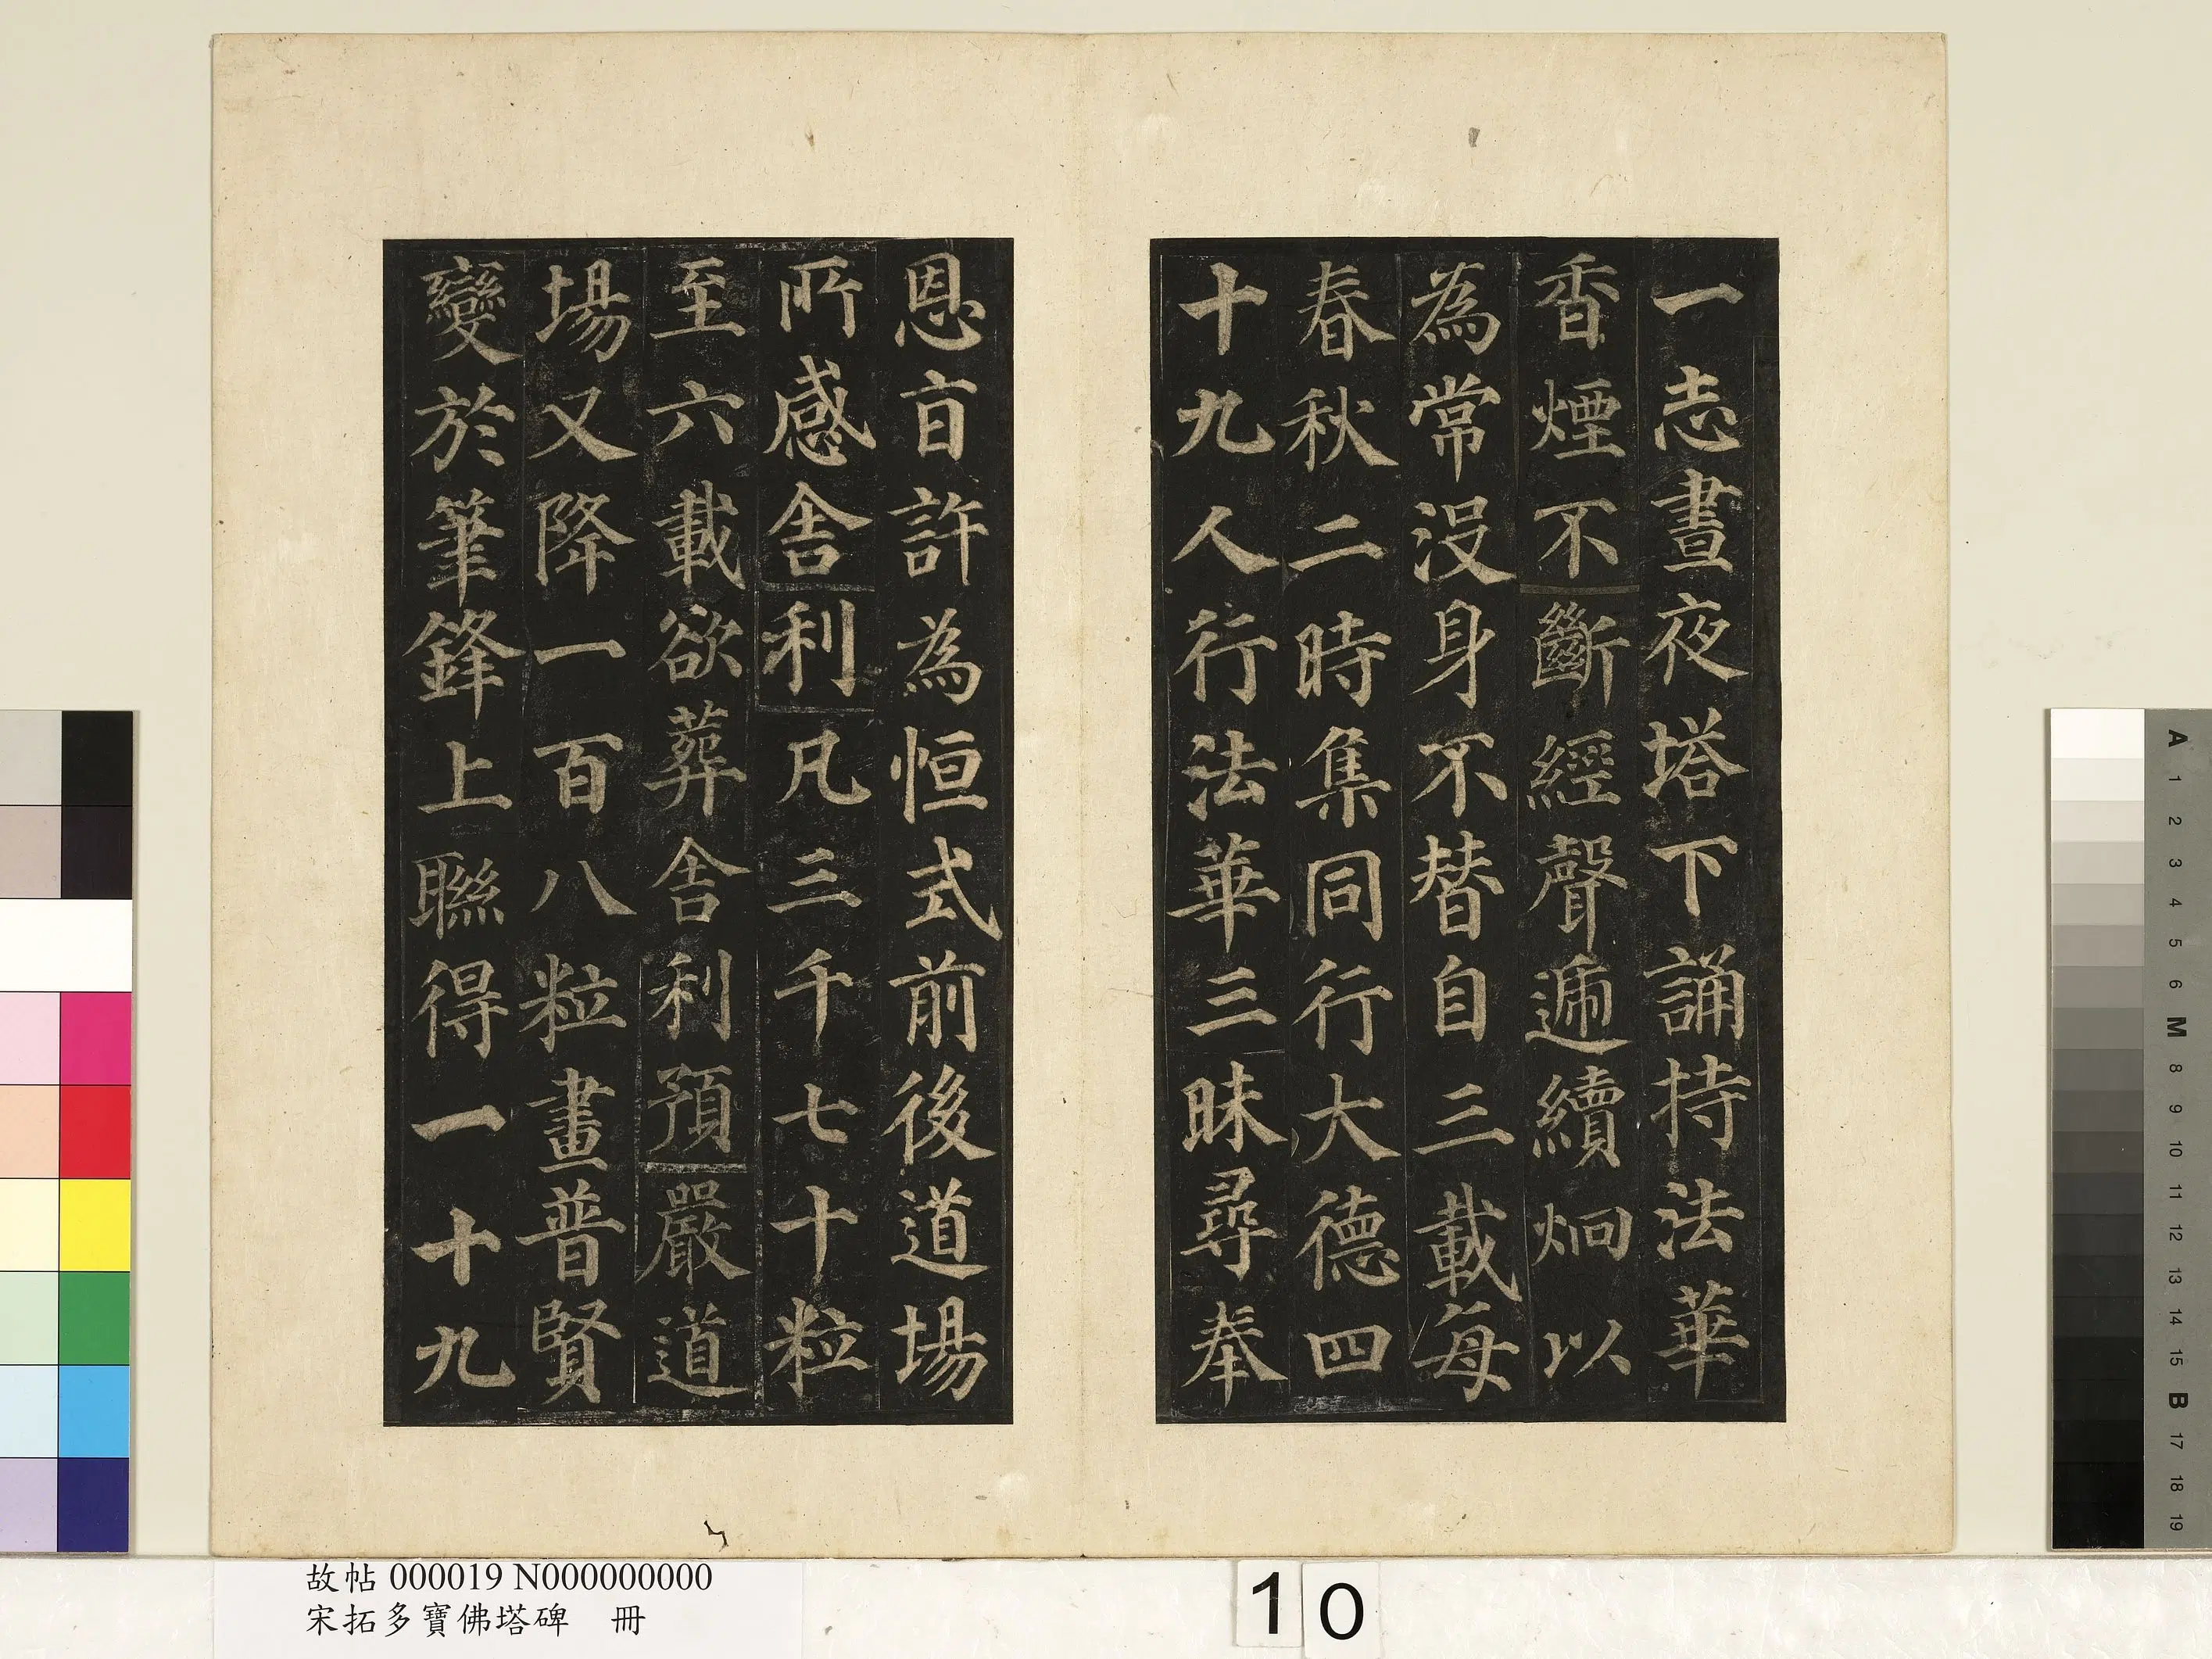 一志晝夜塔下誦持法華
香煙不斷經聲遞續炯以
為常没身不替自三載每
春秋二時集同行大德四
十九人行法華三昧尋奉
恩旨許為恒式前後道場
所感舍利凡三千七十粒
至六載欲葬舍利預嚴道
場又降一百八粒畫普賢
變於筆鋒上聯得一十九
故帖 000019 N000000000
宋拓多寶佛塔碑 冊
10
A
1
2
3
4
5
6
M
8
9
10
11
12
13
14
15
B
17
18
19